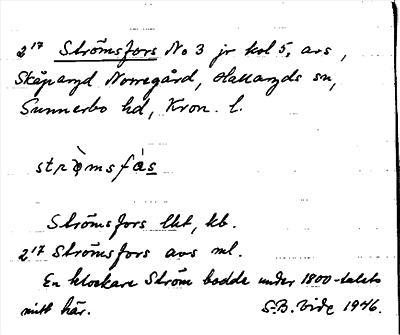 2¹⁷ Strömsfors No 3 jr kol 5, avs,
Skåparyd Norregård, Hallaryds sn,
Sunnerbo hd, Kron. l.
strömsfås
Strömsfors lht, kb.
2¹⁷ Strömsfors avs ml.
En klockare Ström bodde under 1800-talets
mitt här. S.B. Vide 1946.